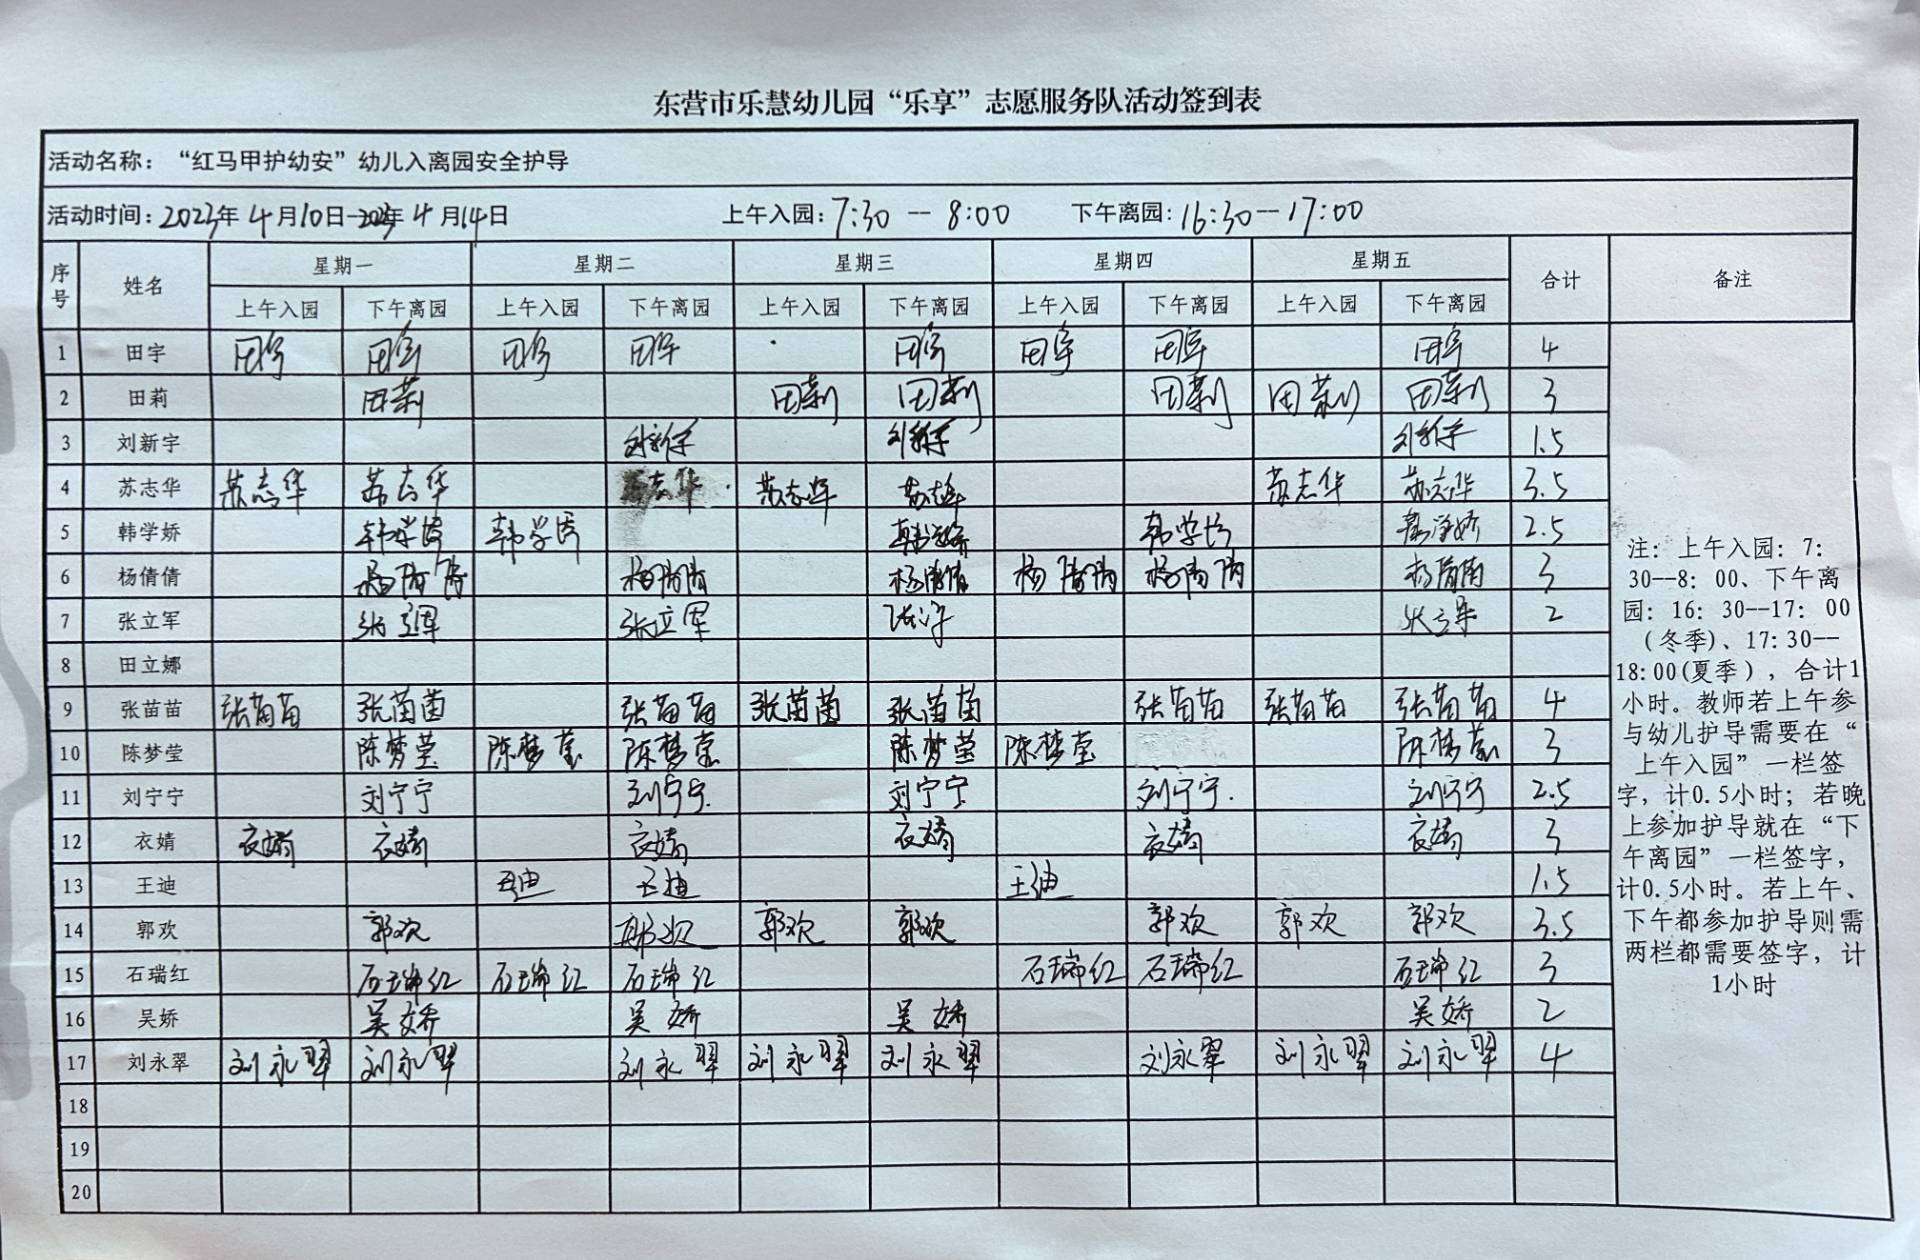 东营市乐慧幼儿园“乐享”志愿服务队活动签到表
活动名称：“红马甲护幼安”幼儿入离园安全护导
活动时间：2023年4月10日-2023年4月14日 上午入园：7:30--8:00 下午离园：16:30--17:00
序号 姓名 星期一 星期二 星期三 星期四 星期五 合计 备注
上午入园 下午离园 上午入园 下午离园 上午入园 下午离园 上午入园 下午离园 上午入园 下午离园
1 田宇 田宇 田宇 田宇 田宇 田宇 田宇 田宇 田宇 4
2 田莉 田莉 田莉 田莉 田莉 田莉 田莉 3
3 刘新宇 刘新宇 刘新宇 刘新宇 1.5
4 苏志华 苏志华 苏志华 苏志华 苏志华 苏志华 苏志华 苏志华 3.5
5 韩学娇 韩学娇 韩学娇 韩学娇 韩学娇 韩学娇 2.5
6 杨倩倩 杨倩倩 杨倩倩 杨倩倩 杨倩倩 杨倩倩 杨倩倩 3
7 张立军 张立军 张立军 张立军 张立军 2
8 田立娜
9 张苗苗 张苗苗 张苗苗 张苗苗 张苗苗 张苗苗 张苗苗 张苗苗 张苗苗 4
10 陈梦莹 陈梦莹 陈梦莹 陈梦莹 陈梦莹 陈梦莹 陈梦莹 3
11 刘宁宁 刘宁宁 刘宁宁 刘宁宁 刘宁宁 刘宁宁 2.5
12 衣婧 衣婧 衣婧 衣婧 衣婧 衣婧 衣婧 3
13 王迪 王迪 王迪 王迪 1.5
14 郭欢 郭欢 郭欢 郭欢 郭欢 郭欢 郭欢 郭欢 3.5
15 石瑞红 石瑞红 石瑞红 石瑞红 石瑞红 石瑞红 石瑞红 3
16 吴娇 吴娇 吴娇 吴娇 吴娇 2
17 刘永翠 刘永翠 刘永翠 刘永翠 刘永翠 刘永翠 刘永翠 刘永翠 刘永翠 4
18
19
20
注：上午入园：7：
30--8：00、下午离
园：16：30--17：00
（冬季）、17:30--
18:00(夏季），合计1
小时。教师若上午参
与幼儿护导需要在“
上午入园”一栏签
字，计0.5小时；若晚
上参加护导就在“下
午离园”一栏签字，
计0.5小时。若上午、
下午都参加护导则需
两栏都需要签字，计
1小时